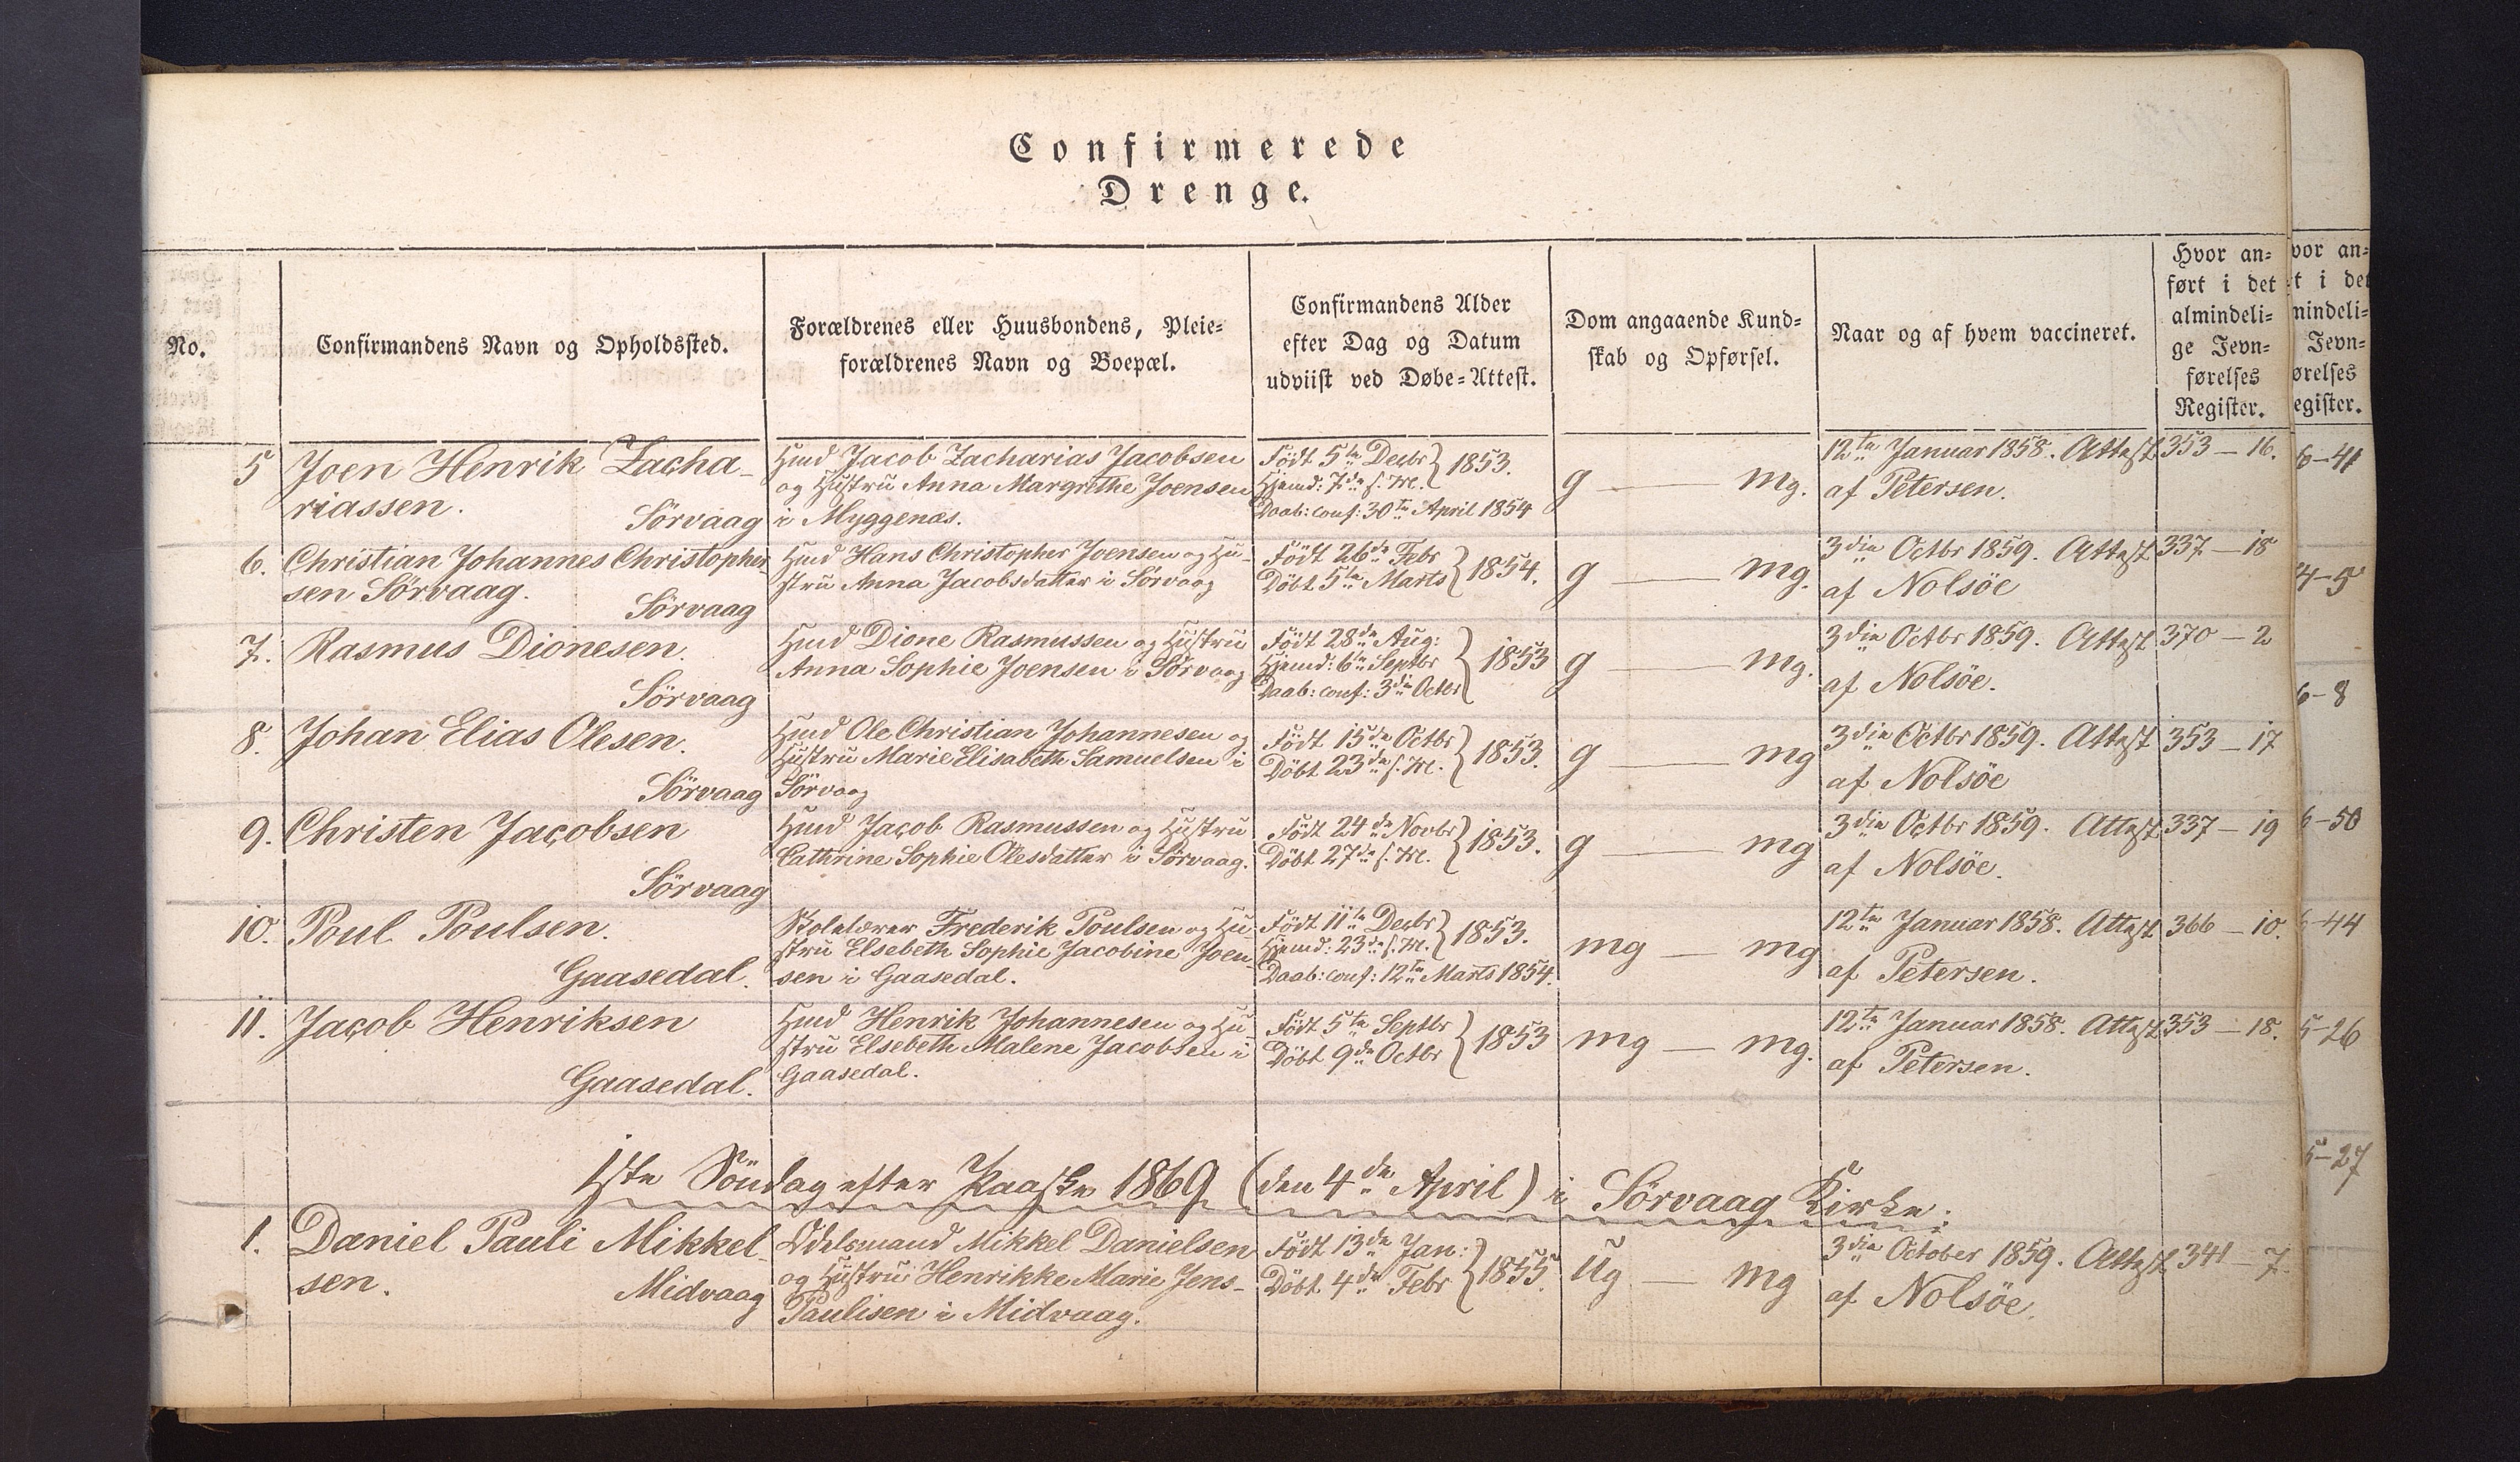 Confirmerede
Drenge.
No.
Confirmandens Navn og Opholdssted.
Forældrenes eller Huusbondens, Pleie=
forældrenes Navn og Boepæl.
Confirmandens Alder
efter Dag og Datum
udviist ved Døbe=Attest.
Dom angaaende Kund=
skab og Opførsel.
Naar og af hvem vaccineret.
Hvor an=
ført i det
almindeli=
ge Jevn=
førelses
Register.
5 Joen Henrik Zacha-
riassen.
Sörvaag
Hmd Jacob Zacharias Jacobsen
og Hustru Anna Margrethe Joensen
i Myggenæs.
Født 5te Decbr } 1853.
Hjemd: 7de s. M.
Daab: conf: 30te April 1854
g — mg.
12te Januar 1858. Attest
af Petersen.
353 — 16.
6. Christian Johannes Christopher-
sen Sörvaag.
Sörvaag
Hmd Hans Christopher Joensen og Hu-
stru Anna Jacobsdatter i Sörvaag
Födt 26de Febr } 1854.
Döbt 5te Marts
g — mg.
3die Octbr 1859. Attest
af Nolsöe
337 — 18
7. Rasmus Dionesen.
Sörvaag
Hmd Dione Rasmussen og Hustru
Anna Sophie Joensen i Sörvaag
Födt 28de Aug: } 1853
Hjemd: 6te Septbr
Daab: conf: 3die Octbr
g — mg.
3die Octbr 1859. Attest
af Nolsöe.
370 — 2
8. Johan Elias Olesen.
Sörvaag
Hmd Ole Christian Johannesen og
Hustru Marie Elisabeth Samuelsen i
Sörvaag
Födt 15de Octbr } 1853.
Döbt 23de s. M.
g — mg
3die Octbr 1859. Attest
af Nolsöe
353 — 17
9. Christen Jacobsen
Sörvaag
Hmd Jacob Rasmussen og Hustru
Cathrine Sophie Olesdatter i Sörvaag.
Födt 24de Novbr } 1853.
Döbt 27de s. M.
g — mg
3die Octbr 1859. Attest
af Nolsöe.
337 — 19
10. Poul Poulsen.
Gaasedal.
Skolelærer Frederik Poulsen og Hu
stru Elsebeth Sophie Jacobine Joen
sen i Gaasedal.
Födt 11te Decbr } 1853.
Hjemd: 23de s. M.
Daab: conf: 12te Marts 1854.
mg — mg
12te Januar 1858. Attest
af Petersen.
366 — 10.
11. Jacob Henriksen
Gaasedal.
Hmd Henrik Johannesen og Hu
stru Elsebeth Malene Jacobsen i
Gaasedal.
Födt 5te Septbr } 1853
Döbt 9de Octbr
mg — mg.
12te Januar 1858. Attest
af Petersen.
353 — 18.
1ste Söndag efter Paaske 1869 (den 4de April) i Sörvaag Kirke:
1. Daniel Pauli Mikkel-
sen.
Midvaag
Odelsmand Mikkel Danielsen
og Hustru Henrikke Marie Jens-
Paulisen i Midvaag.
Födt 13de Jan: } 1855.
Döbt 4de Febr
Ug — mg
3die October 1859. Attest
af Nolsöe.
341 — 7.
vor an=
t i det
mindeli=
Jevn=
ørelses
egister.
6-41
4-5
6-8
6-50
6-44
5-26
5-27